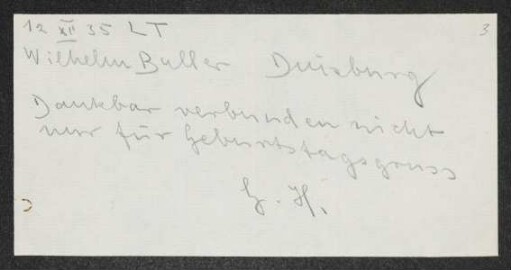 12 XII 35 LT
3
Wilhelm Buller Duisburg
Dankbar verbunden nicht
nur für Geburtstagsgruss
G. H.